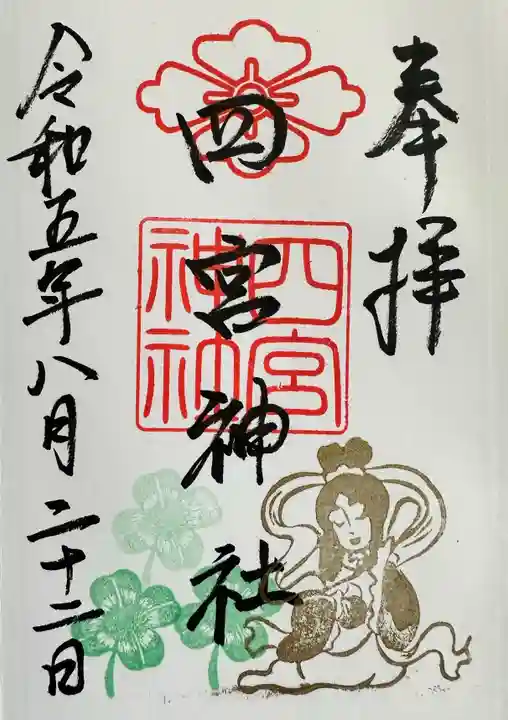 奉拝
四宮神社
四宮神社
令和五年八月二十二日